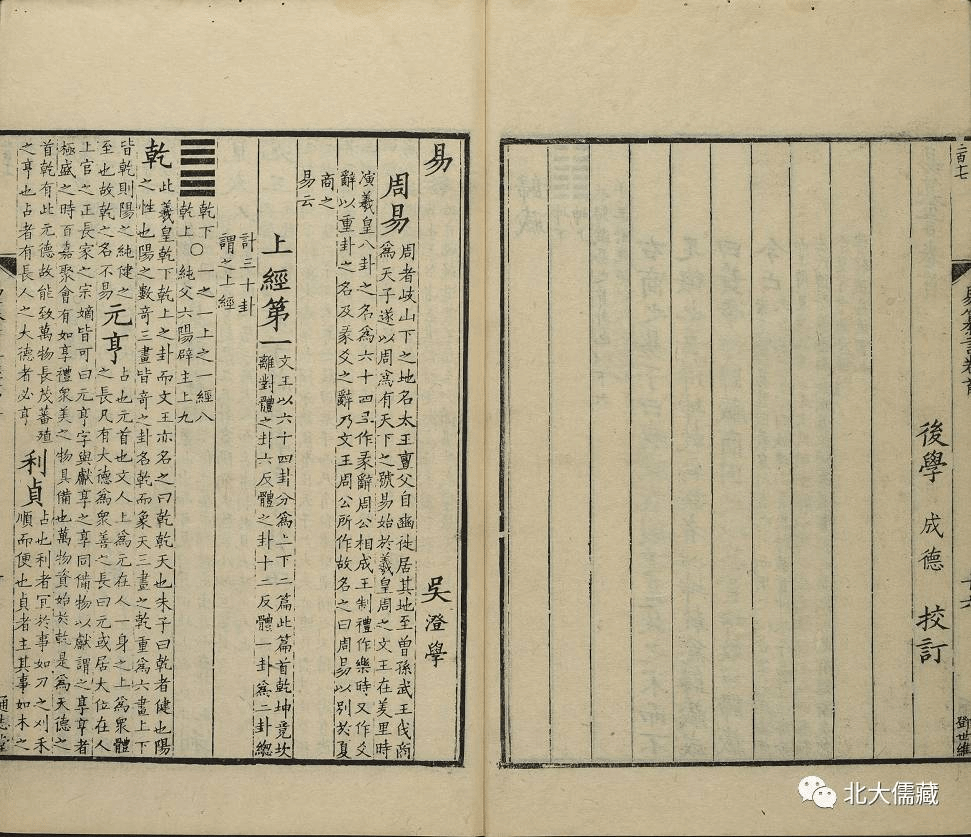 二百七
後學 成德 挍訂
鄧世維
易 吳澄學
周易 周者岐山下之地名太王亶父自豳徙居其地至曾孫武王伐商
爲天子遂以周爲有天下之號易始於羲皇周之文王在羑里時
演羲皇八卦之名爲六十四作彖辭周公相成王制禮作樂時又作爻
辭以重卦之名及彖爻之辭乃文王周公所作故名之曰周易以別於夏
商之
易云
上經第一 文王以六十四卦分爲上下二篇此篇首乾坤竟坎
離對體之卦六反體之卦十二反體一卦爲二卦緫
計三十卦
謂之上經
乾下〇一之一上之一經八
乾上 純父六陽辟主上九
乾 此羲皇乾下乾上之卦而文王亦名之曰乾乾天也朱子曰乾者健也陽
之性也陽之數竒三畫皆竒之卦名乾而象天三畫之乾重爲六畫上下
皆乾則陽之純健之
至也故乾之名不易
元亨 占也元首也文人上爲元在人一身之上爲衆體
之長凡有大德爲衆善之長曰元或居大位在人
上官之正長家之宗嫡皆可曰元亨字與獻享之享同備物以獻謂之享享者
極盛之時百嘉聚會有如享禮衆美之物具備也萬物資始於乾是爲天德之
首乾有此元德故能致萬物長茂蕃殖
之亨也占者有長人之大德者必亨
利貞 占也利者宜於事如刀之刈禾
順而便也貞者主其事如木之
通志堂
北大儒藏